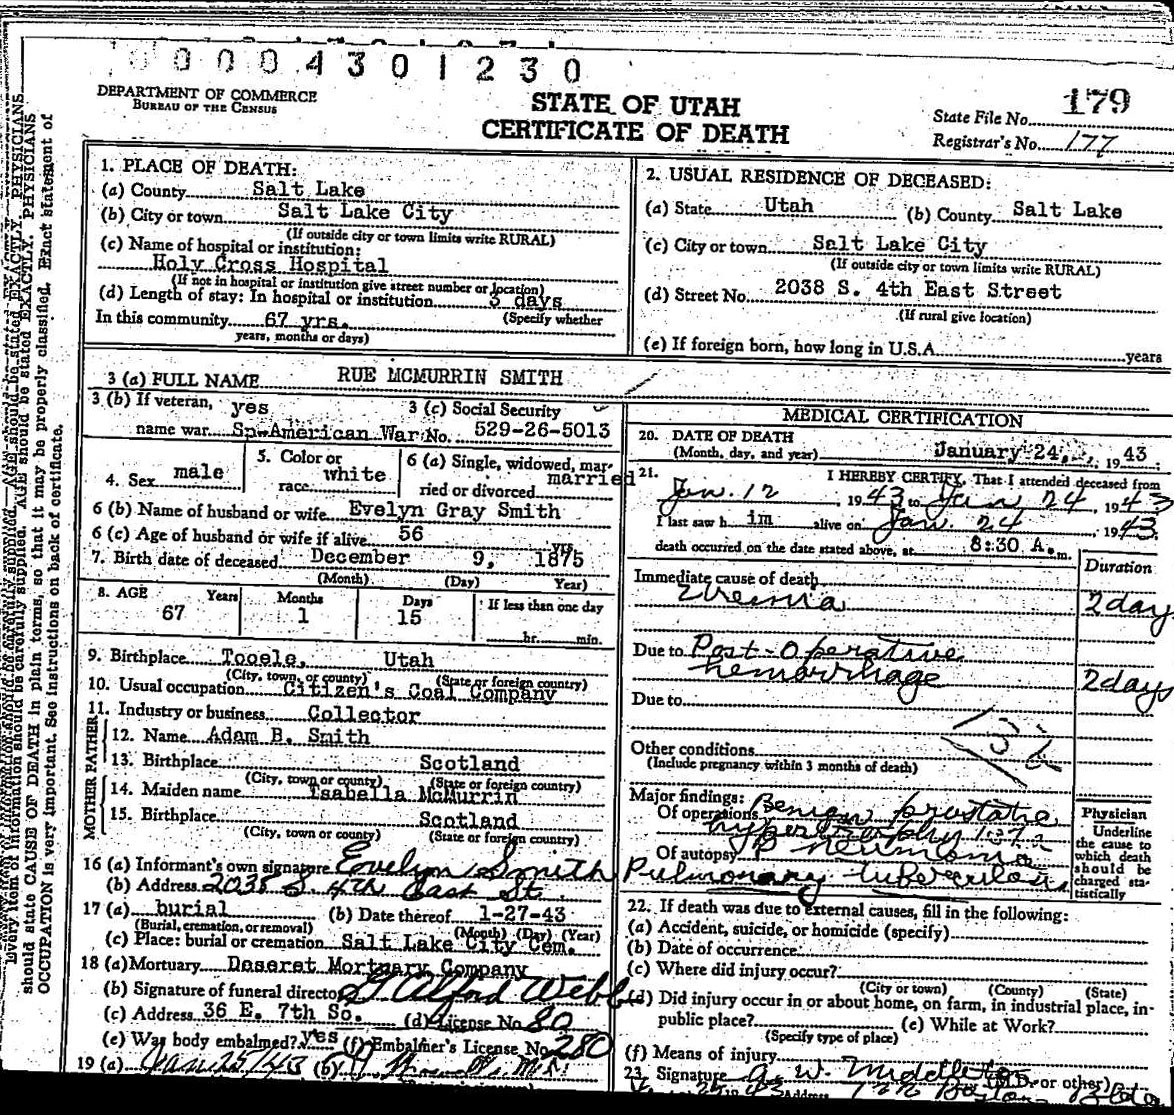 0 0 0 4 3 0 1 2 3 0
DEPARTMENT OF COMMERCE
BUREAU OF THE CENSUS
STATE OF UTAH
CERTIFICATE OF DEATH
State File No. 179
Registrar's No. 177
1. PLACE OF DEATH:
(a) County Salt Lake
(b) City or town Salt Lake City
(If outside city or town limits write RURAL)
(c) Name of hospital or institution:
Holy Cross Hospital
(If not in hospital or institution give street number or location)
(d) Length of stay: In hospital or institution 3 days
In this community 67 yrs. (Specify whether
years, months or days)
2. USUAL RESIDENCE OF DECEASED:
(a) State Utah (b) County Salt Lake
(c) City or town Salt Lake City
(If outside city or town limits write RURAL)
(d) Street No. 2038 S. 4th East Street
(If rural give location)
(e) If foreign born, how long in U.S.A. years
3 (a) FULL NAME RUE MCMURRIN SMITH
3 (b) If veteran, yes 3 (c) Social Security
name war Sp-American War No. 529-26-5013
4. Sex male 5. Color or race white 6 (a) Single, widowed, married or divorced married
6 (b) Name of husband or wife Evelyn Gray Smith
6 (c) Age of husband or wife if alive 56 yrs.
7. Birth date of deceased December 9, 1875
(Month) (Day) Year)
8. AGE Years Months Days If less than one day
67 1 15 hr. min.
9. Birthplace Tooele, Utah
(City, town, or county) (State or foreign country)
10. Usual occupation Citizen's Coal Company
11. Industry or business Collector
FATHER
12. Name Adam B. Smith
13. Birthplace Scotland
(City, town or county) (State or foreign country)
MOTHER
14. Maiden name Isabella McMurrin
15. Birthplace Scotland
(City, town or county) (State or foreign country)
16 (a) Informant's own signature Evelyn Smith
(b) Address 2038 S. 4th East St.
17 (a) burial (b) Date thereof 1-27-43
(Burial, cremation, or removal) (Month) (Day) (Year)
(c) Place: burial or cremation Salt Lake City Cem.
18 (a) Mortuary Deseret Mortuary Company
(b) Signature of funeral director Alford Webb
(c) Address 36 E. 7th So. (d) License No. 80
(e) Was body embalmed? yes (f) Embalmer's License No. 280
19 (a) Jan 25/43 (b)
MEDICAL CERTIFICATION
20. DATE OF DEATH
(Month, day, and year) January 24, 1943
21. I HEREBY CERTIFY, That I attended deceased from
Jan. 12, 1943 to Jan 24, 1943
I last saw him alive on Jan. 24 1943.
death occurred on the date stated above, at 8:30 A.m.
Duration
Immediate cause of death
Uremia 2 day
Due to Post-Operative
hemorrhage 2 days
Due to
136
Other conditions
(Include pregnancy within 3 months of death)
Major findings:
Of operations Benign prostatic
hypertrophy
Of autopsy Pneumonia
Pulmonary tuberculosis
Physician
Underline
the cause to
which death
should be
charged sta-
tistically
22. If death was due to external causes, fill in the following:
(a) Accident, suicide, or homicide (specify)
(b) Date of occurrence
(c) Where did injury occur?
(City or town) (County) (State)
(d) Did injury occur in or about home, on farm, in industrial place, in-
public place? (e) While at Work?
(Specify type of place)
(f) Means of injury
23. Signature A. W. Middleton (M.D. or other)
Address
should state CAUSE OF DEATH in plain terms, so that it may be properly classified. Exact statement of
OCCUPATION is very important. See instructions on back of certificate.